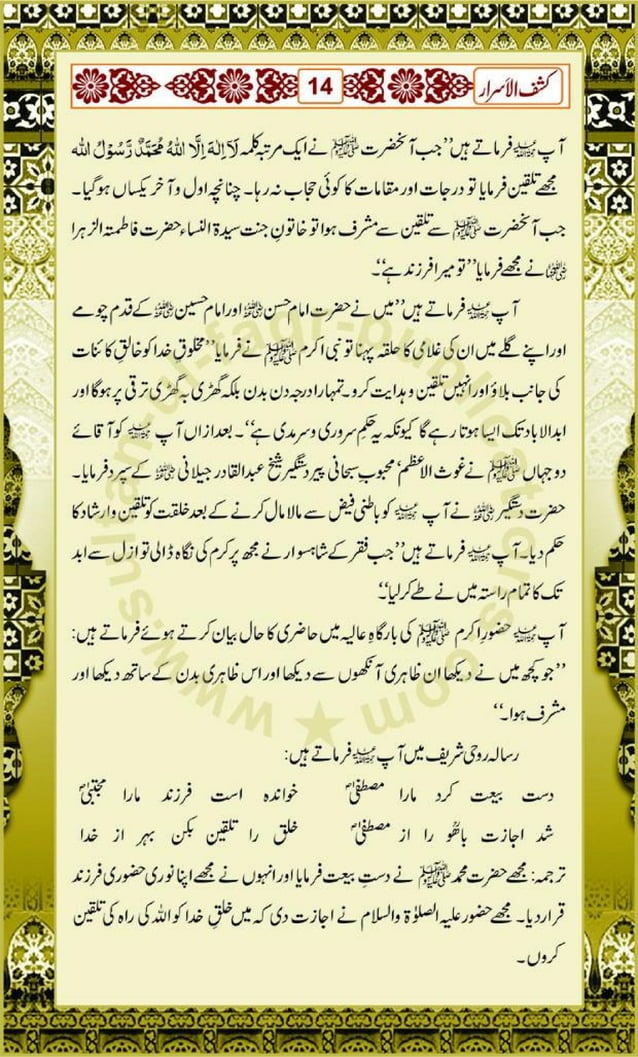 کشف الاسرار
14
آپ رحمۃ اللہ علیہ فرماتے ہیں ’’جب آنحضرت ﷺ نے ایک مرتبہ کلمہ لَآ اِلٰہَ اِلَّا اللہُ مُحَمَّدٌ رَّسُوْلُ اللہ
مجھے تلقین فرمایا تو درجات اور مقامات کا کوئی حجاب نہ رہا۔ چنانچہ اول و آخر یکساں ہوگیا۔
جب آنحضرت ﷺ سے تلقین سے مشرف ہوا تو خاتونِ جنت سیدۃ النساء حضرت فاطمتہ الزہرا
رضی اللہ عنہا نے مجھے فرمایا ’’تو میرا فرزند ہے‘‘۔
آپ رحمۃ اللہ علیہ فرماتے ہیں ’’میں نے حضرت امام حسن رضی اللہ عنہ اور امام حسین رضی اللہ عنہ کے قدم چومے
اور اپنے گلے میں ان کی غلامی کا حلقہ پہنا تو نبی اکرم ﷺ نے فرمایا ’’مخلوقِ خدا کو خالقِ کائنات
کی جانب بلاؤ اور انہیں تلقین و ہدایت کرو۔ تمہارا درجہ دن بدن بلکہ گھڑی بہ گھڑی ترقی پر ہوگا اور
ابدالاباد تک ایسا ہوتا رہے گا کیونکہ یہ حکمِ سروری و سرمدی ہے‘‘۔ بعد ازاں آپ رحمۃ اللہ علیہ کو آقائے
دو جہاں ﷺ نے غوث الاعظم‘ محبوبِ سبحانی پیر دستگیر شیخ عبدالقادر جیلانی رضی اللہ عنہ کے سپرد فرمایا۔
حضرت دستگیر رضی اللہ عنہ نے آپ رحمۃ اللہ علیہ کو باطنی فیض سے مالا مال کرنے کے بعد خلقت کو تلقین و ارشاد کا
حکم دیا۔ آپ رحمۃ اللہ علیہ فرماتے ہیں ’’جب فقر کے شاہسوار نے مجھ پر کرم کی نگاہ ڈالی تو ازل سے ابد
تک کا تمام راستہ میں نے طے کر لیا‘‘۔
آپ رحمۃ اللہ علیہ حضورِ اکرم ﷺ کی بارگاہِ عالیہ میں حاضری کا حال بیان کرتے ہوئے فرماتے ہیں:
’’جو کچھ میں نے دیکھا ان ظاہری آنکھوں سے دیکھا اور اس ظاہری بدن کے ساتھ دیکھا اور
مشرف ہوا۔‘‘
رسالہ روحی شریف میں آپ رحمۃ اللہ علیہ فرماتے ہیں:
دست بیعت کرد مارا مصطفیٰؐ خواندہ است فرزند مارا مجتبیٰؐ
شد اجازت باھوؒ را از مصطفیٰؐ خلق را تلقین بکن بہر از خدا
ترجمہ: مجھے حضرت محمد ﷺ نے دستِ بیعت فرمایا اور انہوں نے مجھے اپنا نوری حضوری فرزند
قرار دیا۔ مجھے حضور علیہ الصلوٰۃ والسلام نے اجازت دی کہ میں خلقِ خدا کو اللہ کی راہ کی تلقین
کروں۔
www.sultan-ul-faqr-publications.com